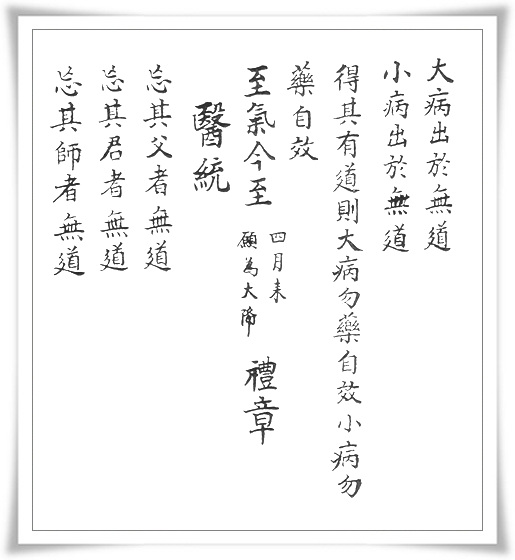 大病出於無道
小病出於無道
得其有道則大病勿藥自效小病勿
藥自效
至氣今至
四月来
願為大降
禮章
醫統
忘其父者無道
忘其君者無道
忘其師者無道